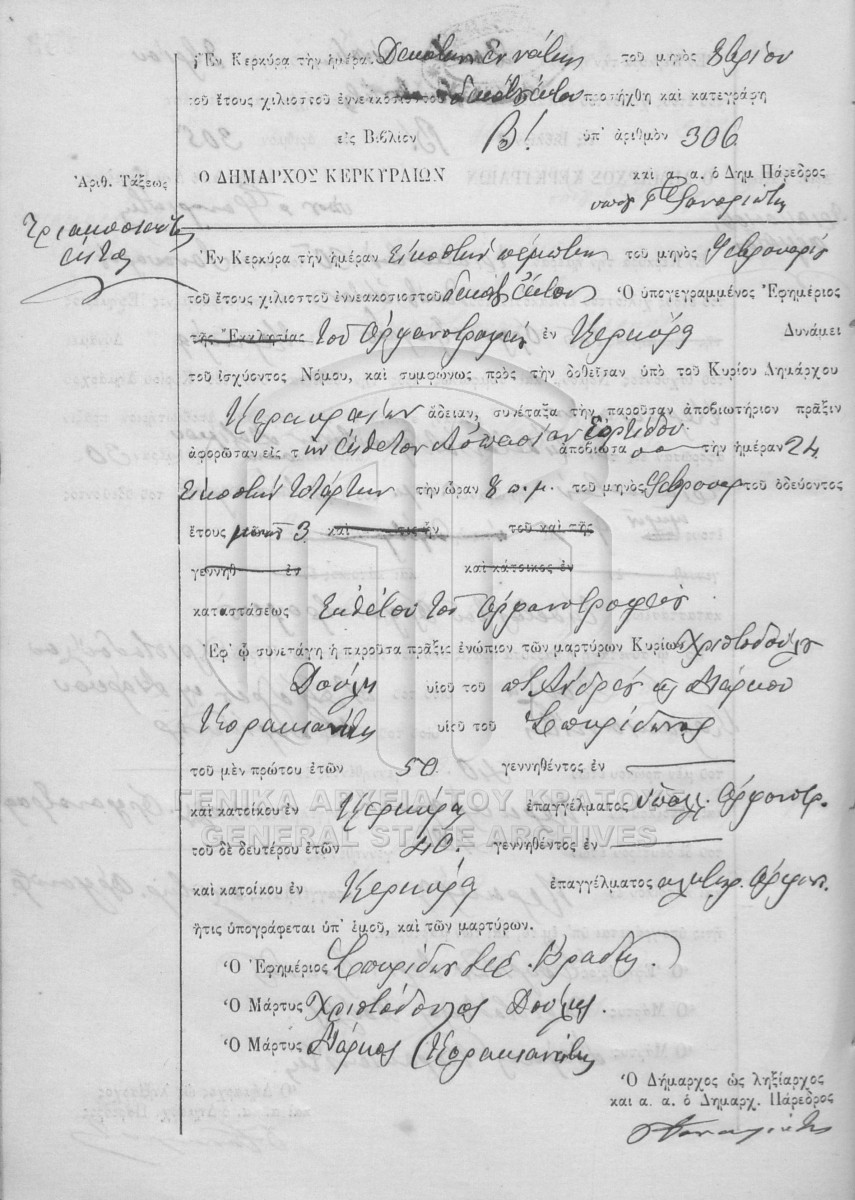 Ἐν Κερκύρᾳ τὴν ἡμέραν Δεκάτην ἐννάτην τοῦ μηνὸς 8βρίου
τοῦ ἔτους χιλιοστοῦ ἐννεακοσιοστοῦ προσήχθη καὶ κατεγράφη
εἰς Βιβλίον Β! ὑπ' ἀριθμὸν 306
Ἀριθ. Τάξεως Ο ΔΗΜΑΡΧΟΣ ΚΕΡΚΥΡΑΙΩΝ καὶ ἀ. ἀ. ὁ Δημ. Πάρεδρος
Τριακοσιοστὴ
ἕκτη
Ἐν Κερκύρᾳ τὴν ἡμέραν Εἰκοστὴν πέμπτην τοῦ μηνὸς Φεβρουαρίου
τοῦ ἔτους χιλιοστοῦ ἐννεακοσιοστοῦ δεκάτου ἕκτου Ὁ ὑπογεγραμμένος Ἐφημέριος
τῆς Ἐκκλησίας τοῦ Ὀρφανοτροφείου ἐν Κερκύρᾳ Δυνάμει
τοῦ ἰσχύοντος Νόμου, καὶ συμφώνως πρὸς τὴν δοθεῖσαν ὑπὸ τοῦ Κυρίου Δημάρχου
Κερκυραίων ἄδειαν, συνέταξα τὴν παροῦσαν ἀποβιωτήριον πρᾶξιν
ἀφορῶσαν εἰς τὴν ἔκθετον Ἀσπασίαν ἀποβιώσασαν τὴν ἡμέραν 24
Εἰκοστὴν τετάρτην τὴν ὥραν 8 π.μ. τοῦ μηνὸς Φεβρουαρ τοῦ ὁδεύοντος
ἔτους μηνῶν 3 καὶ τις ἦν τοῦ καὶ τῆς
γεννηθ ἐν καὶ κάτοικος ἐν
καταστάσεως Ἐκθέτου τοῦ Ὀρφανοτροφείου
Ἐφ' ᾧ συνετάγη ἡ παροῦσα πρᾶξις ἐνώπιον τῶν μαρτύρων Κυρίων Χριστοδούλου
Δούλη υἱοῦ τοῦ π. Ἀνδρέα κ Μάρκου
Κορακιανίτη υἱοῦ τοῦ Σπυρίδωνος
τοῦ μὲν πρώτου ἐτῶν 50. γεννηθέντος ἐν
καὶ κατοίκου ἐν Κερκύρᾳ ἐπαγγέλματος ὑπαλλ. Ὀρφανοτρ.
ΓΕΝΙΚΑ ΑΡΧΕΙΑ ΤΟΥ ΚΡΑΤΟΥΣ
GENERAL STATE ARCHIVES
τοῦ δὲ δευτέρου ἐτῶν 40. γεννηθέντος ἐν
καὶ κατοίκου ἐν Κερκύρᾳ ἐπαγγέλματος Ὀρφαν.
ἥτις ὑπογράφεται ὑπ' ἐμοῦ, καὶ τῶν μαρτύρων.
Ὁ Ἐφημέριος Σπυρίδων
Ὁ Μάρτυς Χριστόδουλος Δούλης.
Ὁ Μάρτυς Μάρκος Κορακιανίτης
Ὁ Δήμαρχος ὡς ληξίαρχος
καὶ ἀ. ἀ. ὁ Δημαρχ. Πάρεδρος